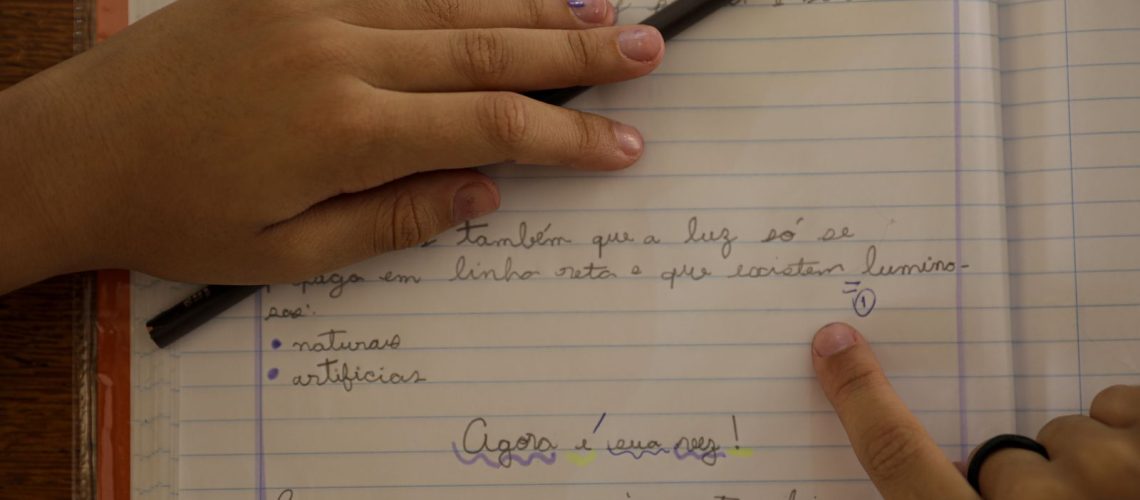 também que a luz só se
em linha reta e que existem lumino-
sas:
=①
• naturais
• artificias
Agora é sua vez!